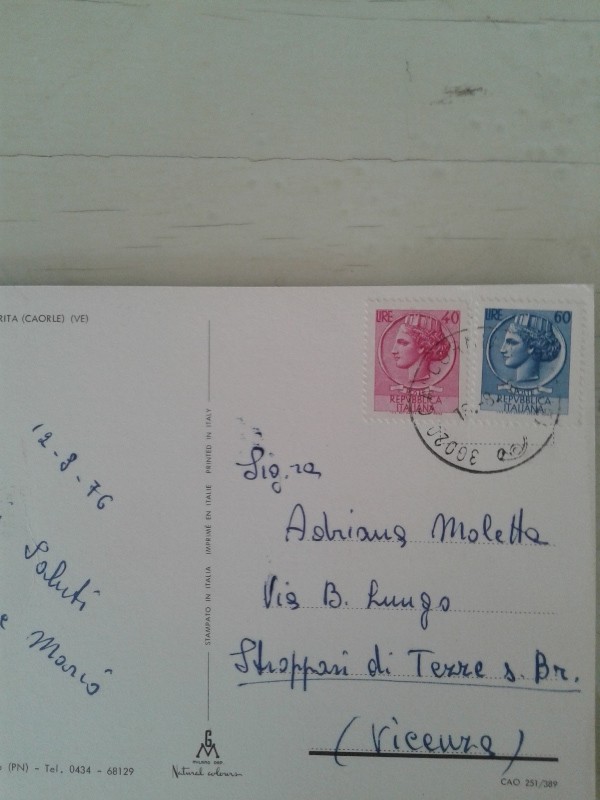 RITA (CAORLE) (VE)
12-8-76
Saluti
e Mario
(PN) - Tel. 0434 - 68129
STAMPATO IN ITALIA IMPRIME EN ITALIE PRINTED IN ITALY
Natural colours
LIRE 40
POSTE
REPVBBLICA
ITALIANA
LIRE 60
POSTE
REPVBBLICA
ITALIANA
30020
Sig.ra
Adriana Moletta
Via B. Lungo
Stroppari di Tezze s. Br.
(Vicenza)
CAO 251/389